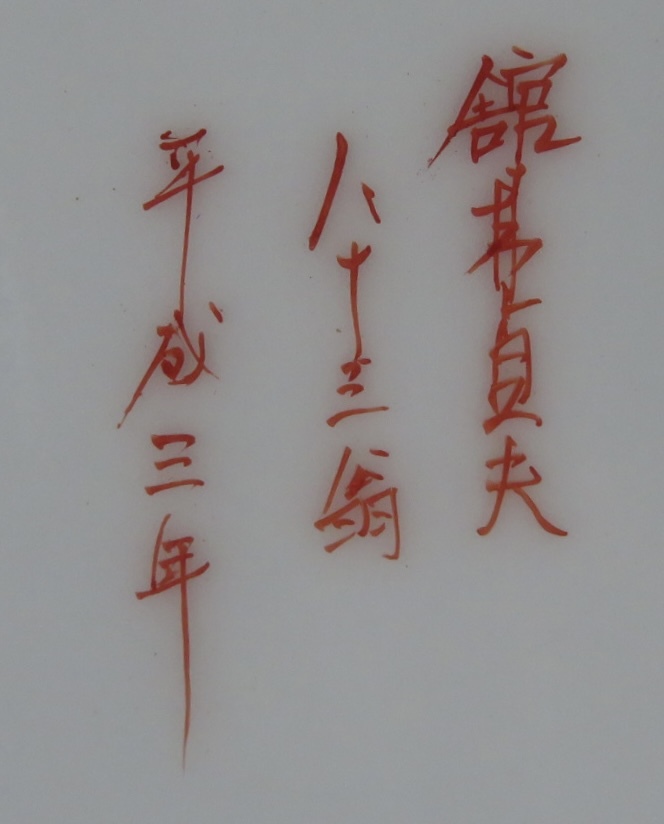 舘貞夫
八十三翁
平成三年